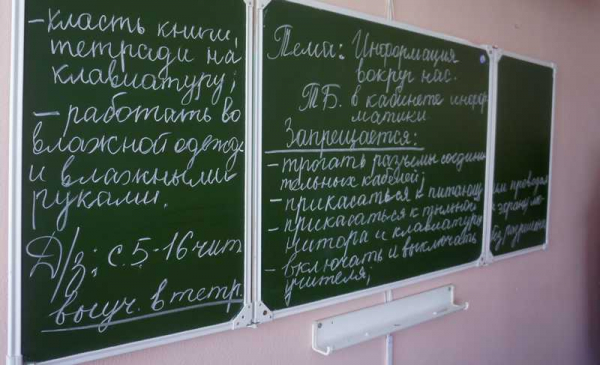 – класть книги,
тетради на
клавиатуру;
– работать во
влажной одежде
и влажными
руками.
Д/з: с. 5-16 чит
выуч. в тетр
Тема: Информация
вокруг нас.
ТБ. в кабинете инфор
матики
Запрещается:
- трогать разъемы соедини
тельных кабелей;
- прикасаться к питающим проводам
- прикасаться к тыльной экрану мо
нитора и клавиатуре
- включать и выключать
учителя;